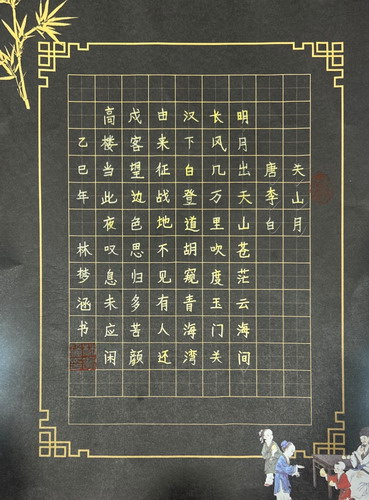 关山月
唐李白
明月出天山苍茫云海间
长风几万里吹度玉门关
汉下白登道胡窥青海湾
由来征战地不见有人还
戍客望边色思归多苦颜
高楼当此夜叹息未应闲
乙巳年 林梦涵书